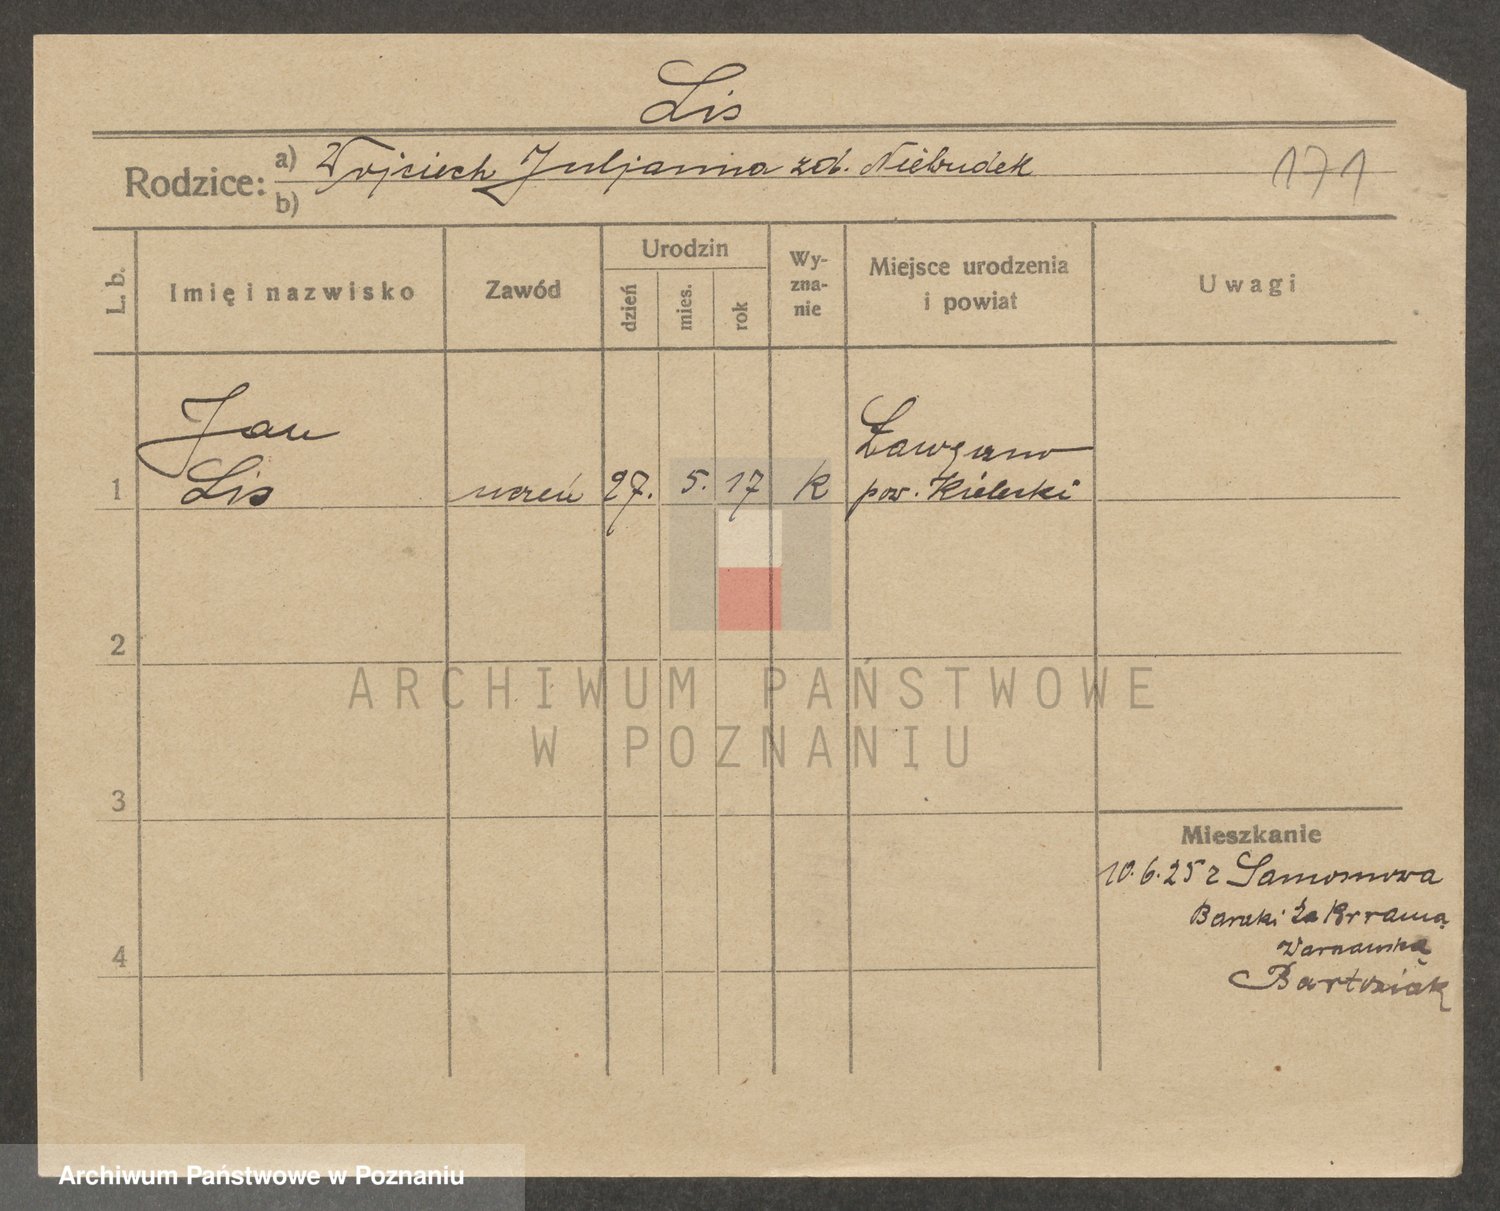 Lis
Rodzice: a) Wojciech Juljanna zd. Niebudek
b)
171
L. b.
Imię i nazwisko
Zawód
Urodzin
dzień
mies.
rok
Wy-
zna-
nie
Miejsce urodzenia
i powiat
Uwagi
Jan
Lis
1
uczeń
27. 5. 17
k
pow. Kielecki
2
3
4
Mieszkanie
10.6.25 r
Baraki za Bramą
Warszawską
Bartosiak
ARCHIWUM PAŃSTWOWE
W POZNANIU
Archiwum Państwowe w Poznaniu